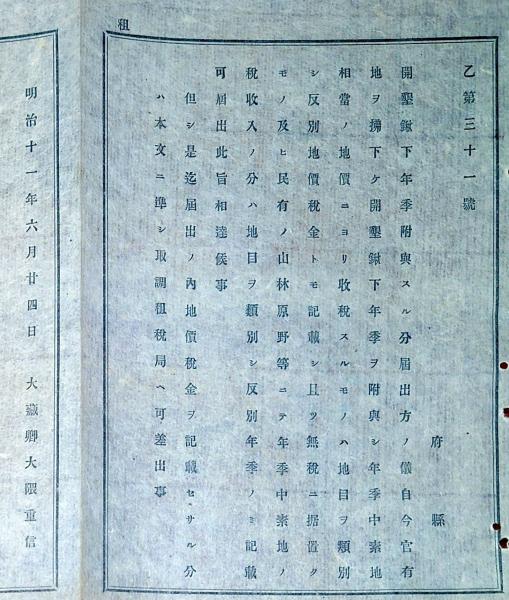 租
乙第三十一號
府縣
開墾鍬下年季附與スル分屆出方ノ儀自今官有
地ヲ拂下ケ開墾鍬下年季ヲ附與シ年季中素地
相當ノ地價ニヨリ收稅スルモノハ地目ヲ類別
シ反別地價稅金トモ記載シ且ツ無稅ニ据置ク
モノ及ヒ民有ノ山林原野等ニテ年季中素地ノ
稅收入ノ分ハ地目ヲ類別シ反別年季ノミ記載
可屆出此旨相達候事
但シ是迄屆出ノ內地價稅金ヲ記載セサル分
ハ本文ニ準シ取調租稅局ヘ可差出事
明治十一年六月廿四日 大藏卿大隈重信